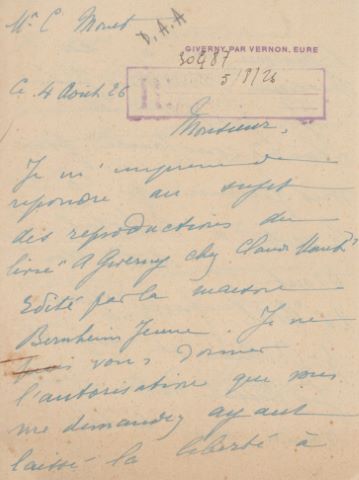 Mr C Monet
D.A.A
GIVERNY PAR VERNON, EURE
30487
5/8/26
Ce 4 Août 26
Monsieur,
Je m'empresse de
repondre au sujet
des reproductions du
livre "A Giverny chez Claude Monet"
Edité par la maison
Bernheim Jeune. Je ne
puis vous donner
l'autorisation que vous
me demandez ayant
laissé la liberté à